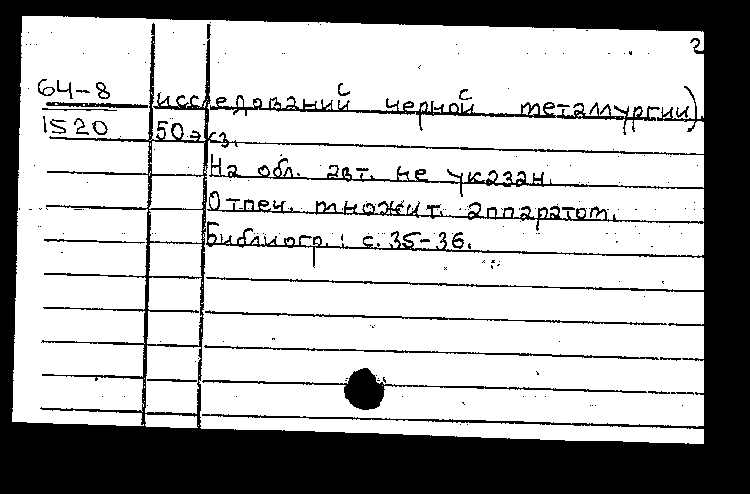 2
64-8 исследований черной металлургии).
1520 50 экз.
На обл. авт. не указан.
Отпеч. множит. аппаратом.
Библиогр.: с. 35-36.